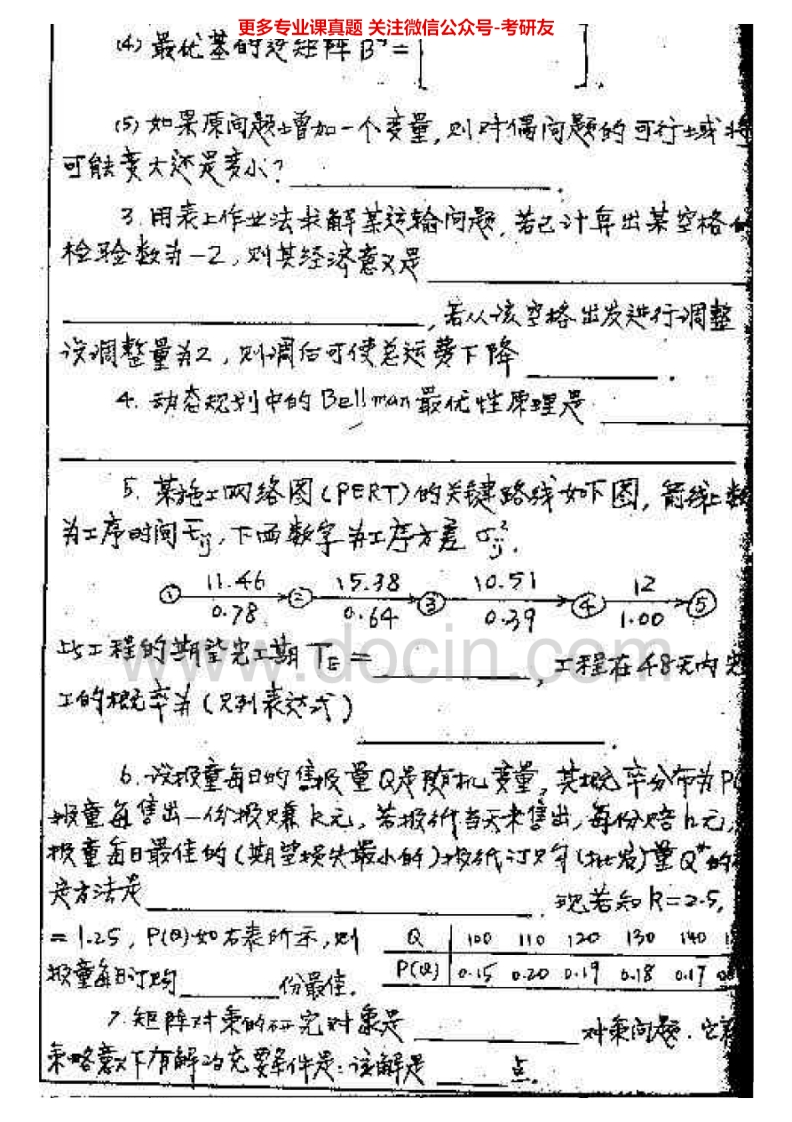 更多专业课真题 关注微信公众号-考研友
(4) 最优基的逆矩阵 B⁻¹ = [ ].
(5) 如果原问题增加一个变量, 则对偶问题的可行域将
可能变大还是变小? ________.
3. 用表上作业法求解某运输问题, 若已计算出某空格的
检验数为-2, 则其经济意义是 ________
________, 若从该空格出发进行调整
设调整量为2, 则调后可使总运费下降 ________.
4. 动态规划中的Bellman最优性原理是 ________
5. 某施工网络图(PERT)的关键路线如下图, 箭线上数
为工序时间 t̄ij, 下面数字为工序方差 σ²ij.
① 11.46 ② 15.38 ③ 10.51 ④ 12 ⑤
0.78 0.64 0.39 1.00
此工程的期望完工期 TE = ________, 工程在48天内完
工的概率为(只列表达式)
________.
www.docin.com
6. 设报童每日的售报量Q是随机变量, 其概率分布为P(
报童每售出一份报赚k元, 若报纸当天未售出, 每份赔h元,
报童每日最佳的(期望损失最小的)报纸订购(批发)量Q*的
定方法是 ________. 现若知 k=2.5,
=1.25, P(Q)如右表所示, 则
Q 100 110 120 130 140
报童每日订购 ________ 份最佳.
P(Q) 0.15 0.20 0.19 0.18 0.17
7. 矩阵对策的研究对象是 ________ 对策问题. 它
策略意义下有解的充要条件是: 该解是 ____ 点.